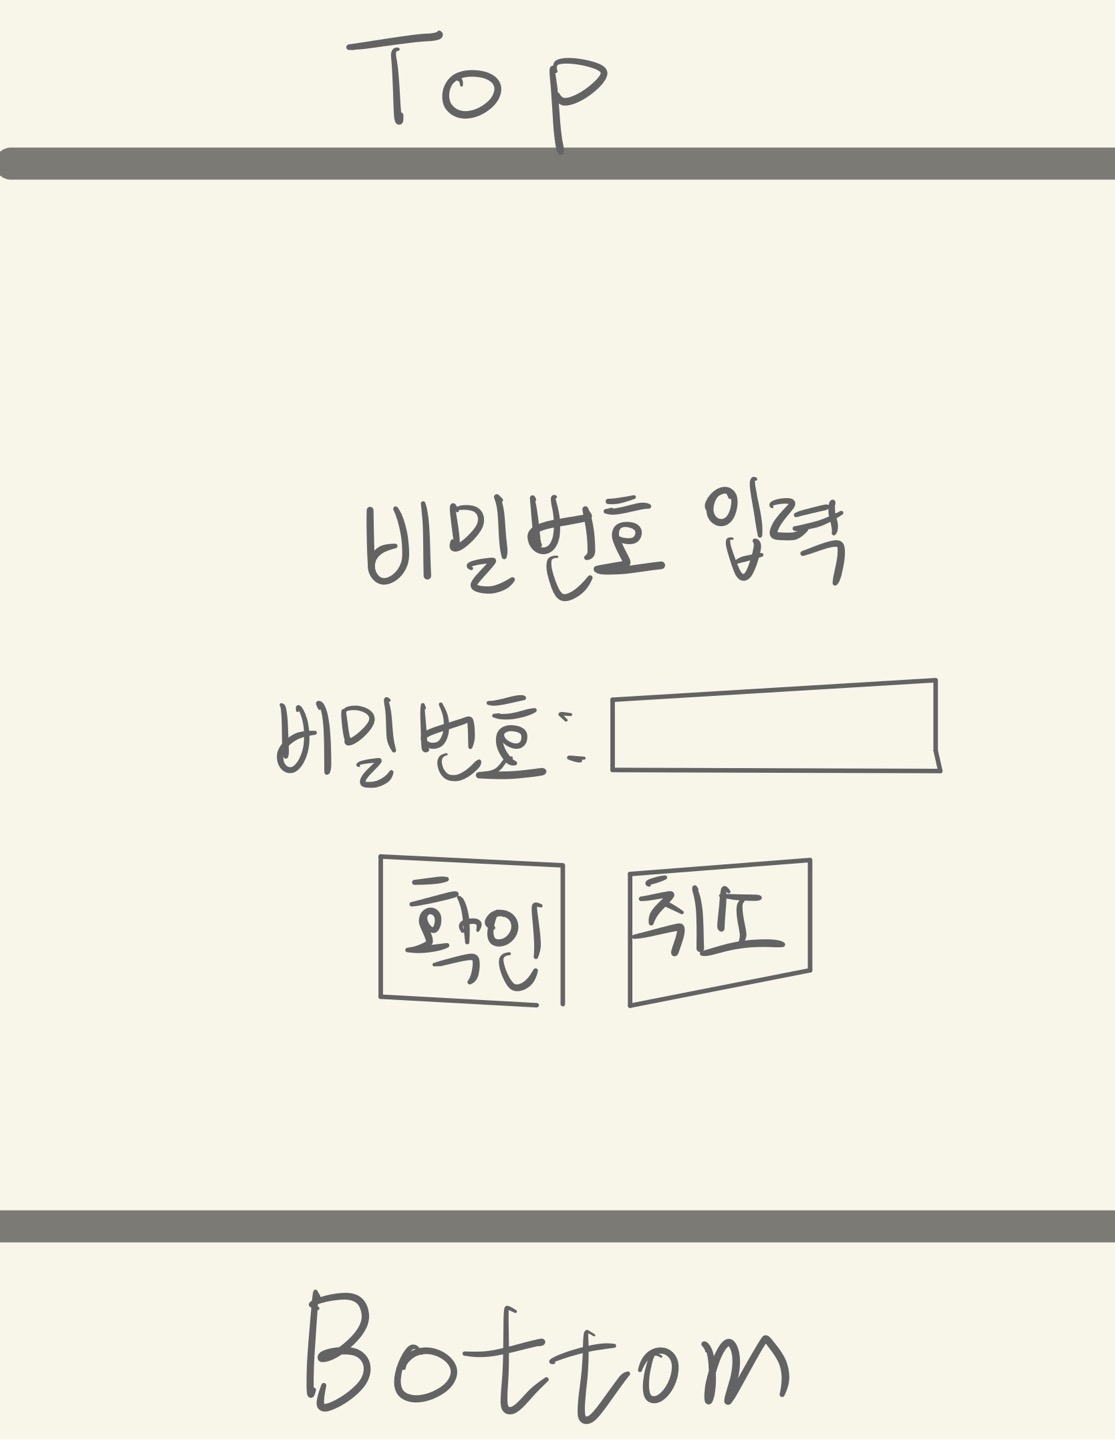 Top
비밀번호 입력
비밀번호:
확인 취소
Bottom